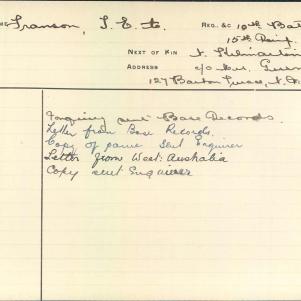 Transon, J. E.
Reg. &c 10th Bat
15th Reinf.
Next of Kin
Address
127 Barton
Inquiry sent Base Records.
Letter from Base Records.
Copy of same sent Enquirer
Letter from West: Australia
Copy sent Enquirer